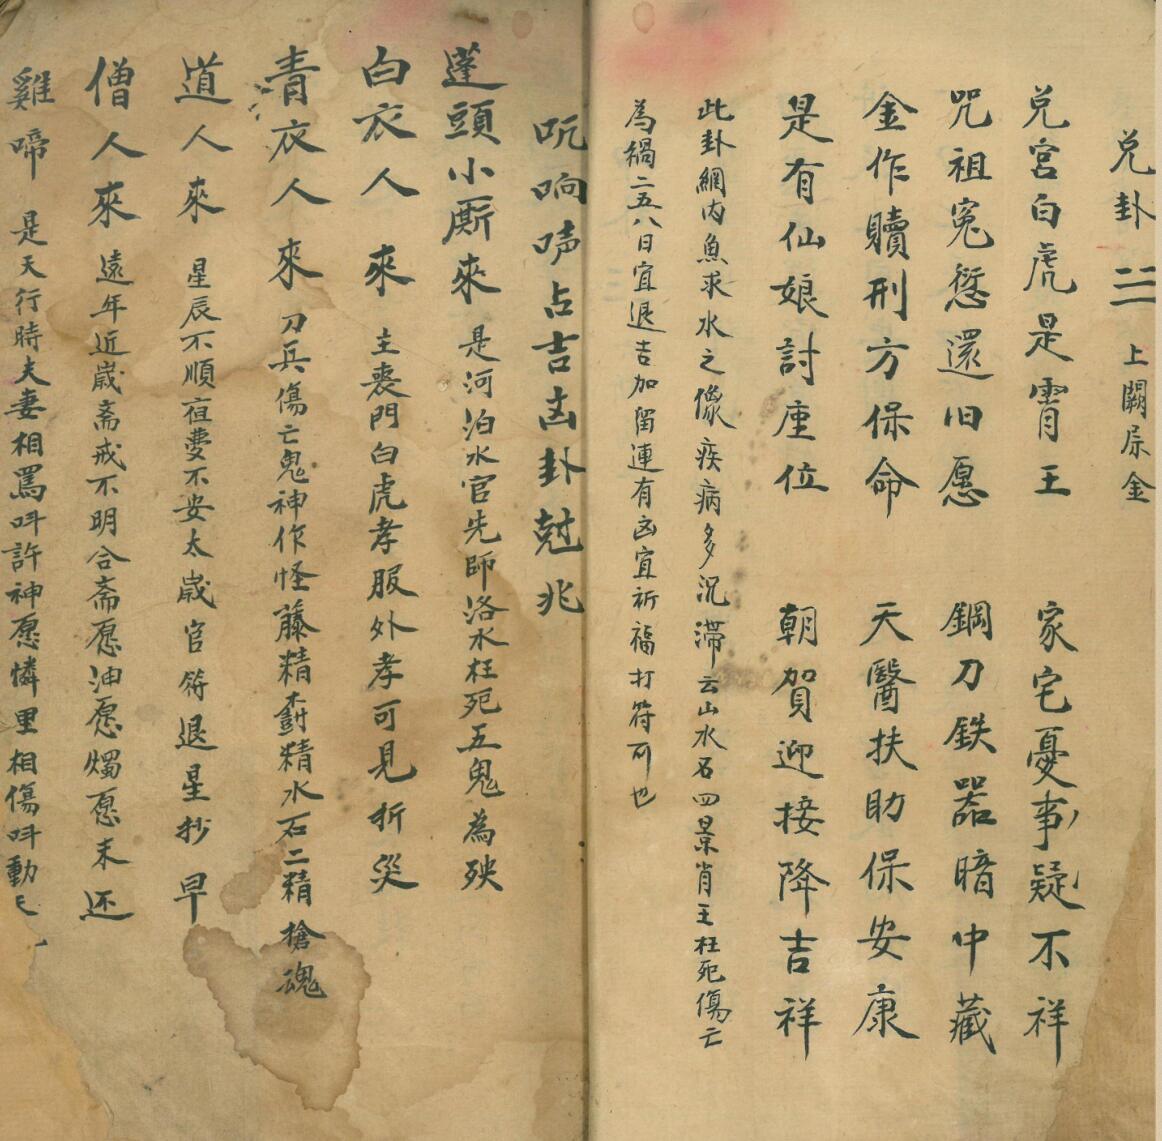 兑卦 上闕屬金
兑宮白虎是霄王 家宅憂事疑不祥
咒祖冤愆還旧愿 鋼刀鉄器暗中藏
金作贖刑方保命 天醫扶助保安康
是有仙娘討座位 朝賀迎接降吉祥
此卦網內魚求水之像疾病多沉滯云山水石四景肖王枉死傷亡
為禍二五八日宜退吉加留連有凶宜祈福打符可也
响声占吉凶卦尅兆
蓬頭小厮來 是河泊水官先師洛水枉死五鬼為殃
白衣人來 主喪門白虎孝服外孝可見折災
青衣人來 刀兵傷亡鬼神作怪藤精樹精水石二精槍魂
道人來 星辰不順夜夢不安太歲官符退星抄早
僧人來 遠年近歲斋戒不明合斋愿油愿燭愿未还
雞啼 是天行時夫妻相罵叫許神愿憐里相傷叫動